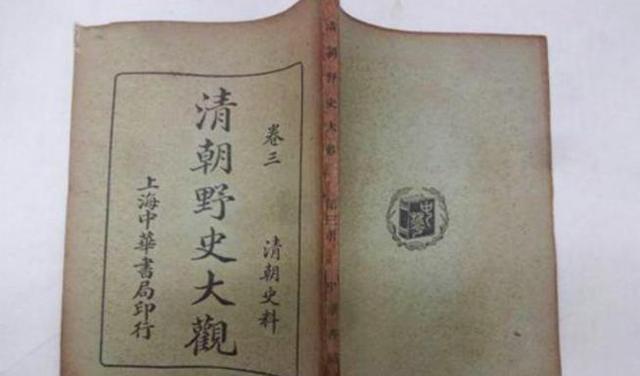 卷三　清朝史料
清朝野史大觀
上海中華書局印行
清朝野史大觀
中華